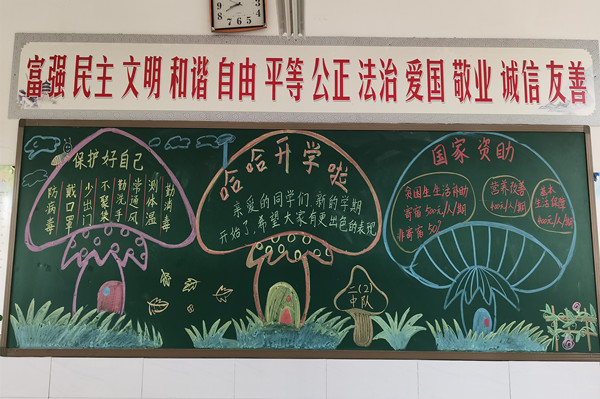 富强 民主 文明 和谐 自由 平等 公正 法治 爱国 敬业 诚信 友善
保护好自己
防病毒
戴口罩
少出门
不聚集
勤洗手
常通风
测体温
勤消毒
哈哈开学啦
亲爱的同学们,新的学期
开始了,希望大家有更出色的表现
二(2)
中队
国家资助
贫困生生活补助
寄宿500元/人/期
非寄宿50%
营养改善
400元/人/期
基本
生活保障
400元/人/期